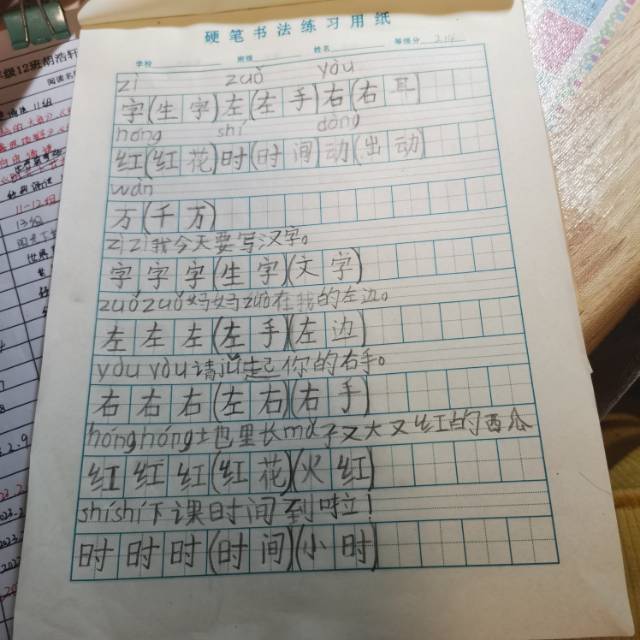 硬笔书法练习用纸
学校 班级 姓名 等级分
zi zuo you
字(生字)左(左手)右(右耳)
hong shi dong
红(红花)时(时间)动(出动)
wan
万(千万)
zi zi我今天要写汉字。
字字字(生字)(文字)
zuo zuo妈妈zuo在我的左边。
左左左(左手)(左边)
you you请你的右手。
右右右(左右)(右手)
hong hong地里长了又大又红的西瓜
红红红(红花)(火红)
shi shi下课时间到啦!
时时时(时间)(小时)